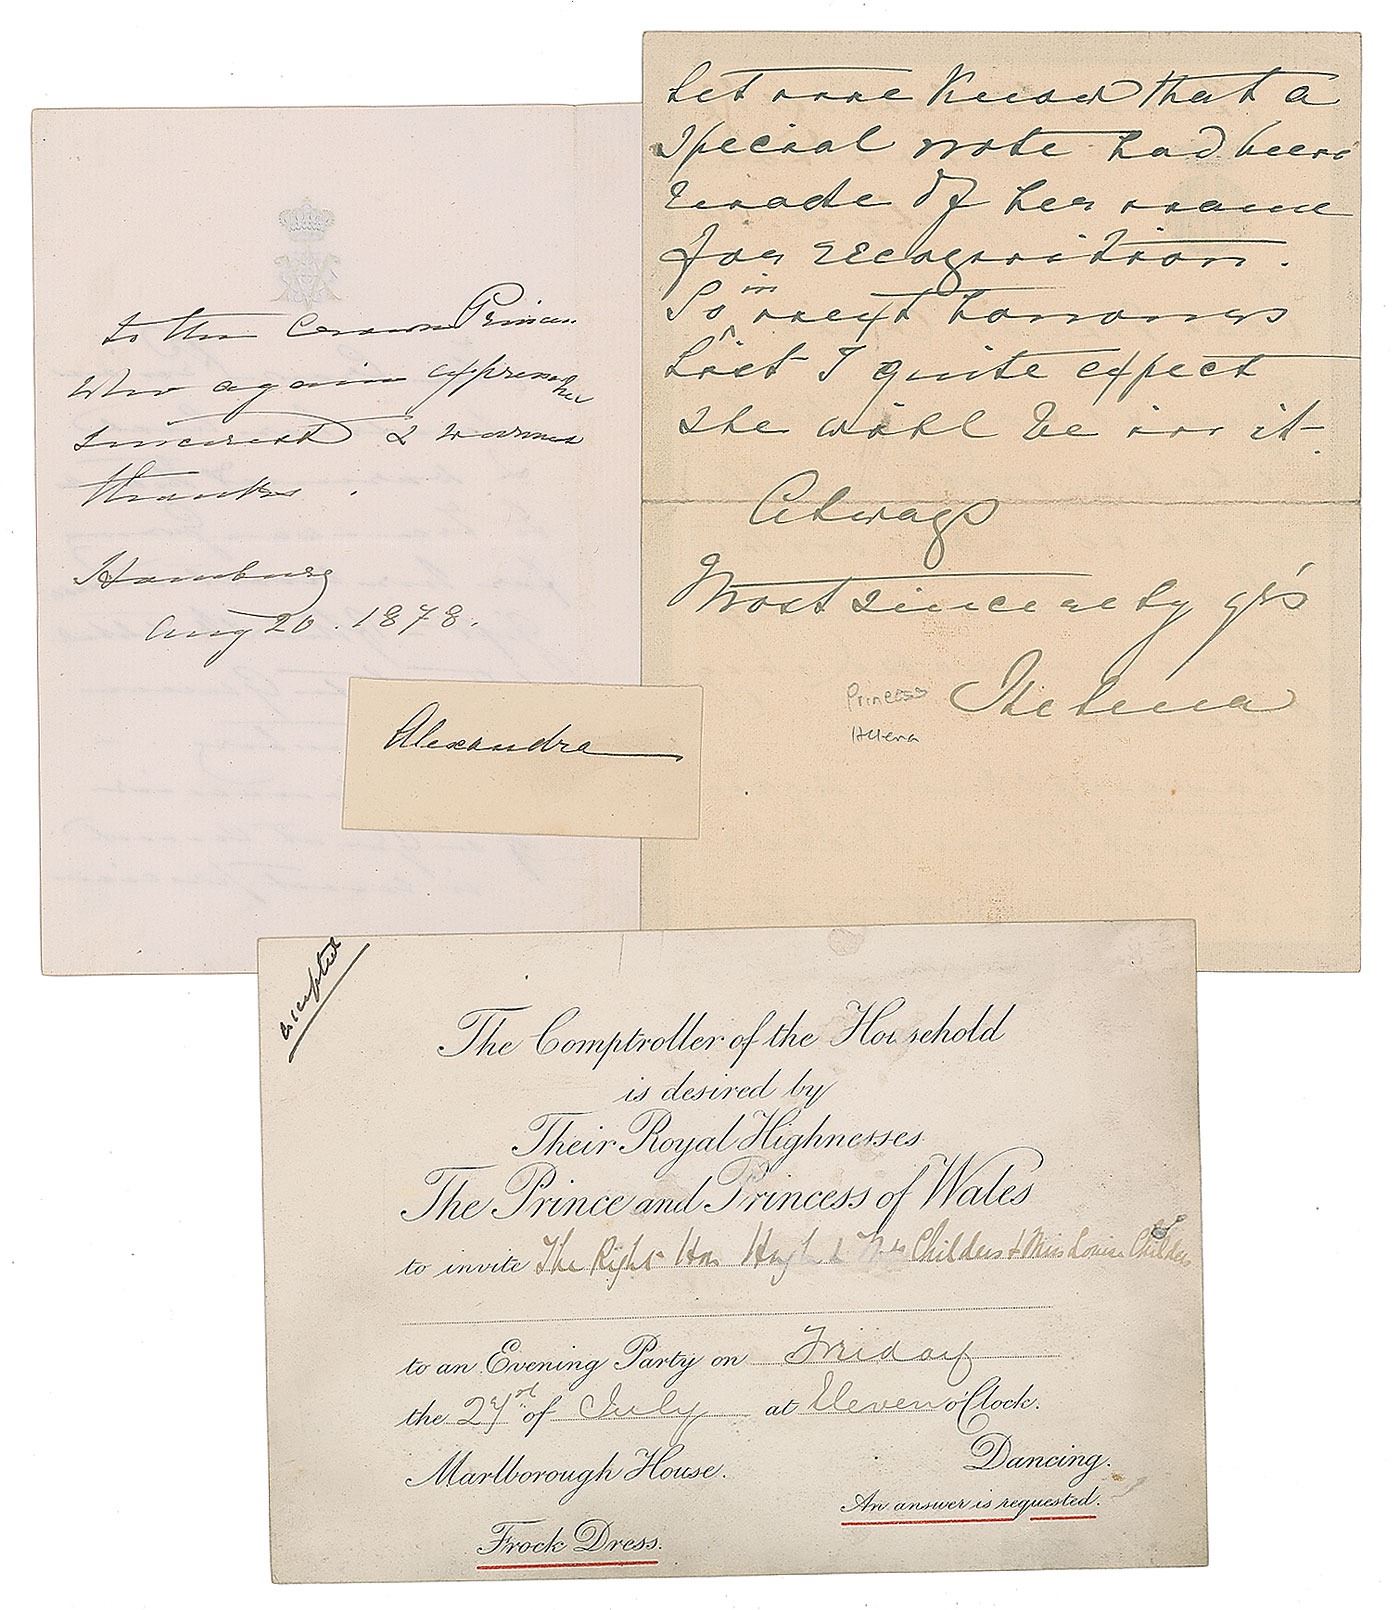 to the Crown Princess
who again expresses her
sincerest & warmest
thanks.
Hamburg
Aug 20. 1878.
let me know that a
special note had been
made of her name
for recognition.
So in next honours
list I quite expect
she will be in it
Always
Most sincerely yrs
Helena
Princess
Helena
Alexandra
accepted
The Comptroller of the Household
is desired by
Their Royal Highnesses
The Prince and Princess of Wales
to invite The Right Hon Hugh & Mrs Childers & Miss Louise Childers
to an Evening Party on Friday
the 27th of July at Eleven o'Clock.
Marlborough House. Dancing.
An answer is requested.
Frock Dress.